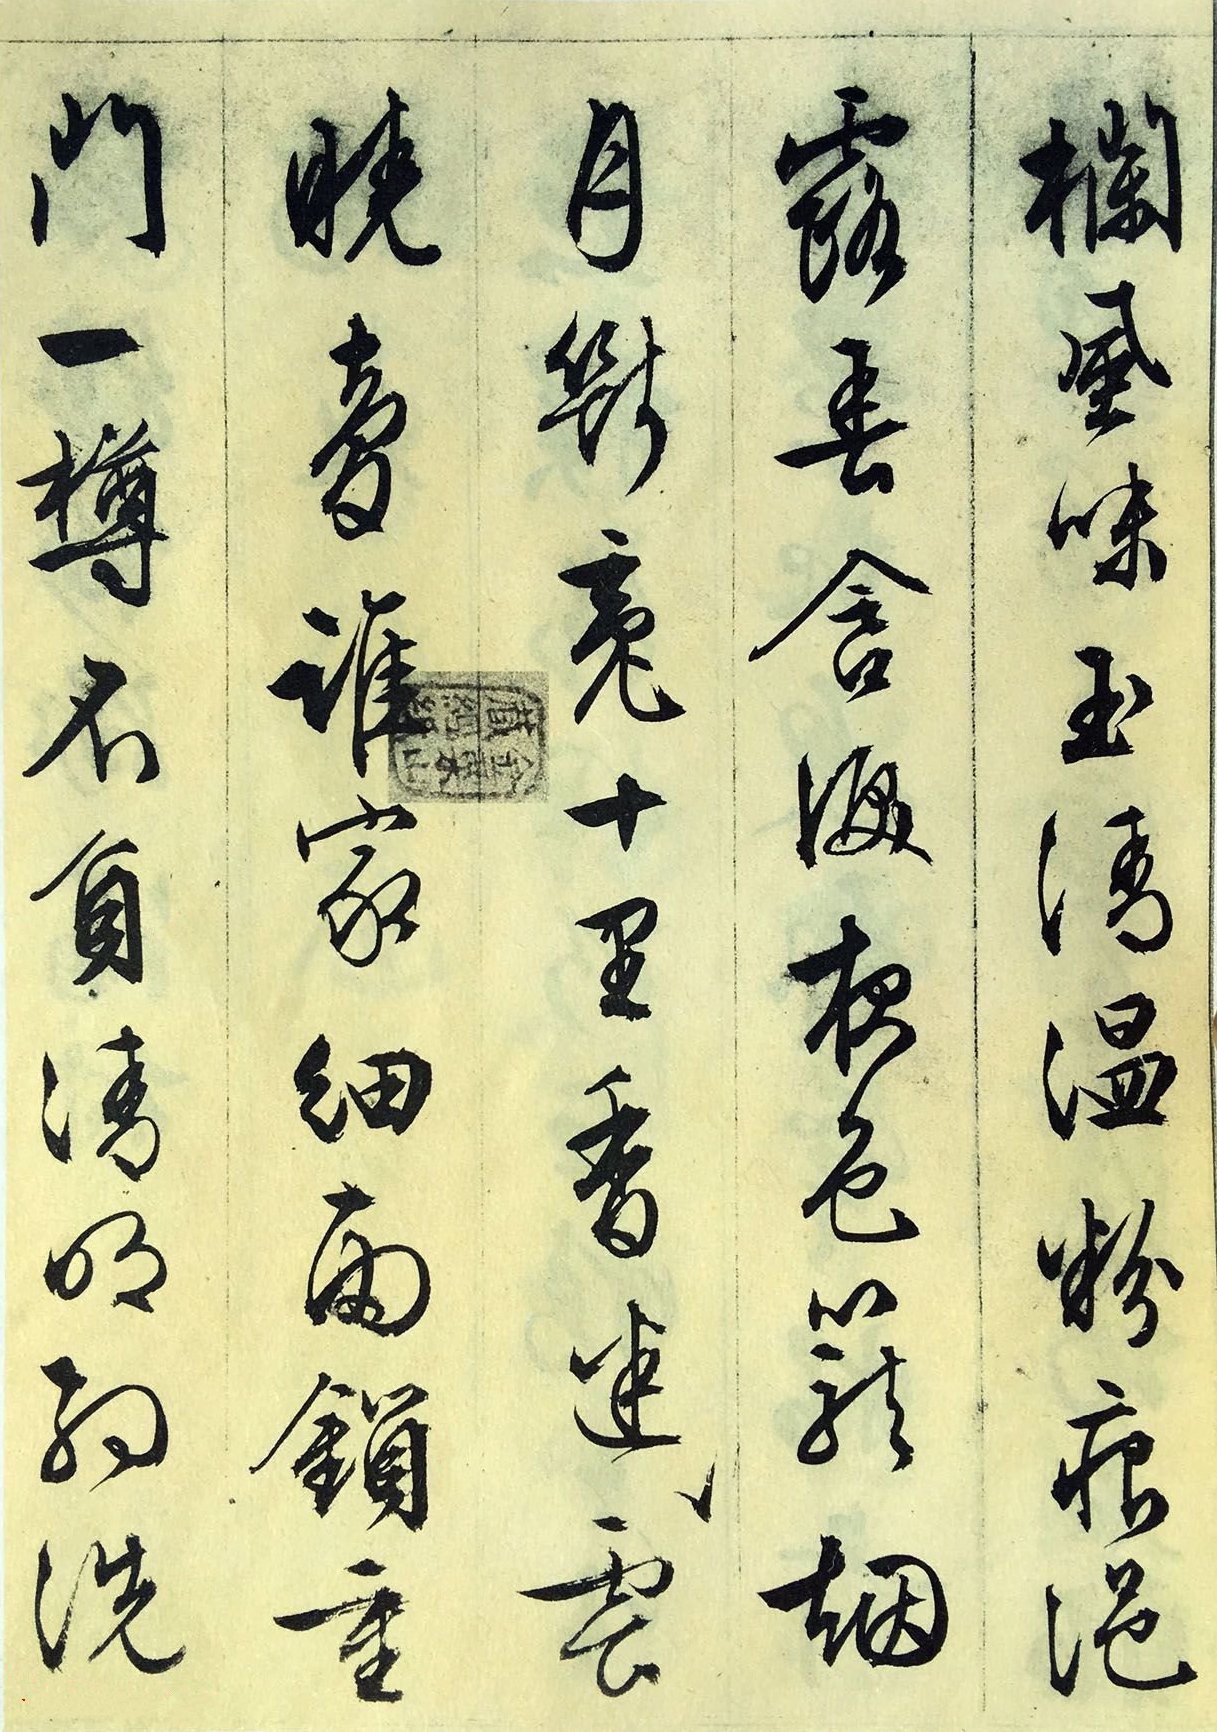 欄風味玉清溫粉痕浥
露春含淚夜色籠烟
月斷魂十里香迷雲
曉夢誰家細雨鎖重
門一樽不負清明約洗